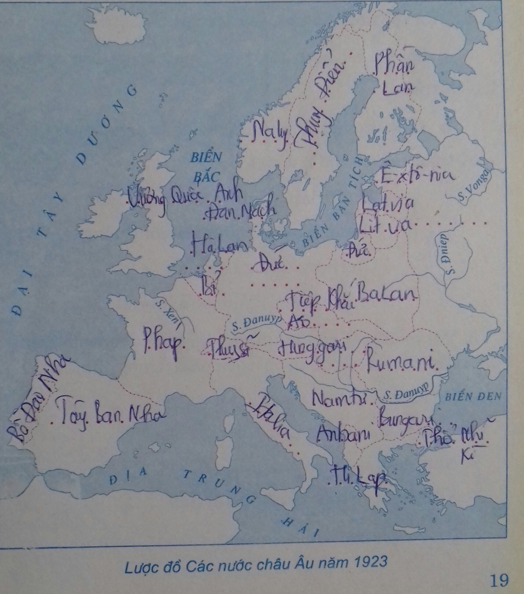 Phần
Lan
Thụy Điển
Na Uy
ĐẠI TÂY DƯƠNG
BIỂN
BẮC
Extô-nia
S. Vonga
Vương Quốc Anh
Đan Mạch
BIỂN BAN TÍCH
Latvia
Litva
Hà Lan
Đức
Đức
S. Đniep
Bỉ
Tiệp Khắc
Balan
S. Xen
S. Đanuyp
Áo
Pháp
Thụy Sĩ
Hunggari
Rumani
Bồ Đào Nha
Tây Ban Nha
Italia
Namtư
S. Đanuyp
BIỂN ĐEN
Anbani
Bungari
Thổ Nhĩ
Kì
Hi Lạp
ĐỊA TRUNG HẢI
Lược đồ Các nước châu Âu năm 1923
19